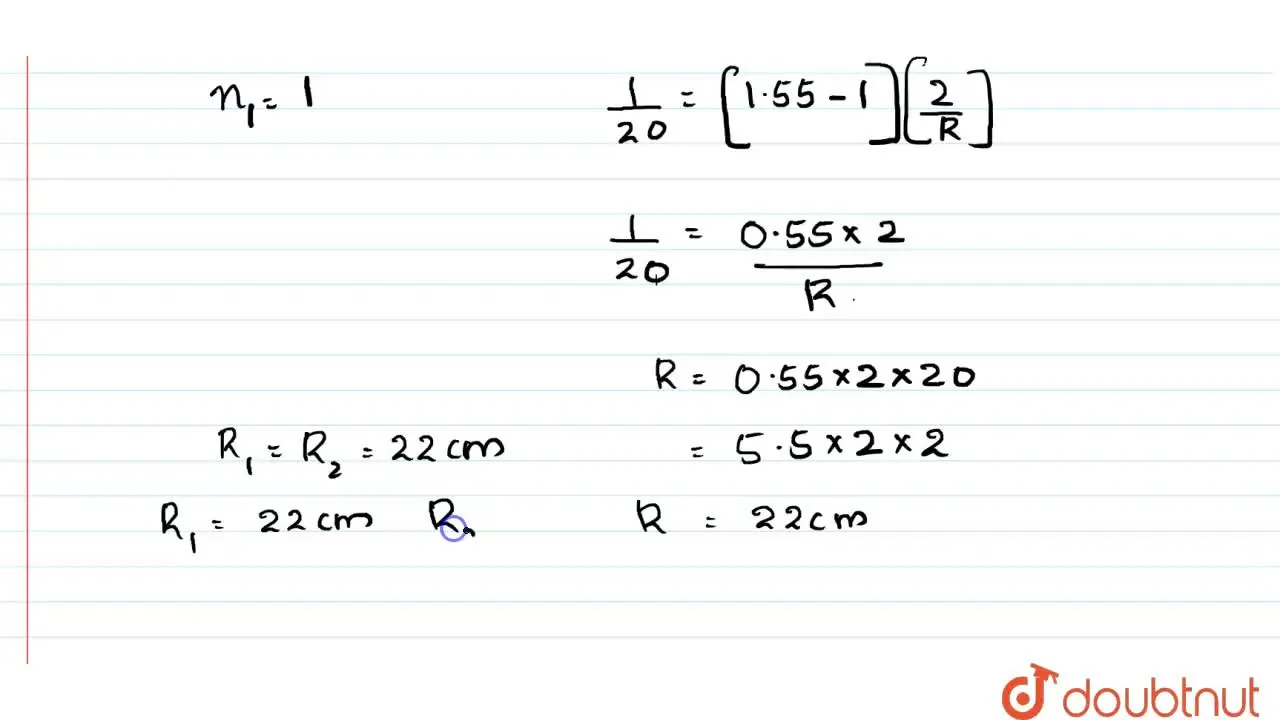 n₁ = 1 1/20 = [1.55 - 1] [2/R]
1/20 = 0.55 × 2 / R
R = 0.55 × 2 × 20
R₁ = R₂ = 22 cm = 5.5 × 2 × 2
R₁ = 22 cm R R = 22 cm
doubtnut